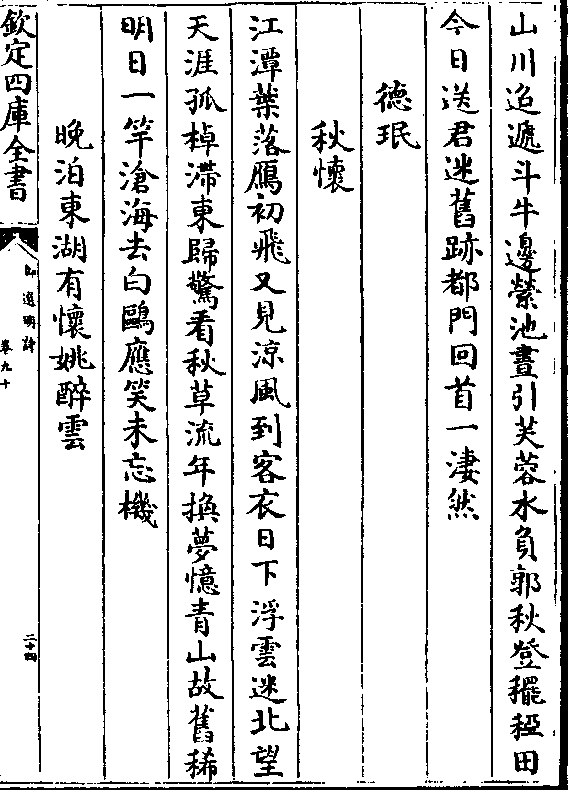 山川迢遞斗牛邊縈池晝引芙蓉水負郭秋登䆉稏田
今日送君迷舊跡都門回首一淒然
德珉
秋懷
江潭葉落鴈初飛又見涼風到客衣日下浮雲迷北望
天涯孤棹滯東歸驚看秋草流年換夢憶青山故舊稀
明日一竿滄海去白鷗應笑未忘機
晚泊東湖有懷姚醉雲
欽定四庫全書
御選明詩
卷九十
二十四